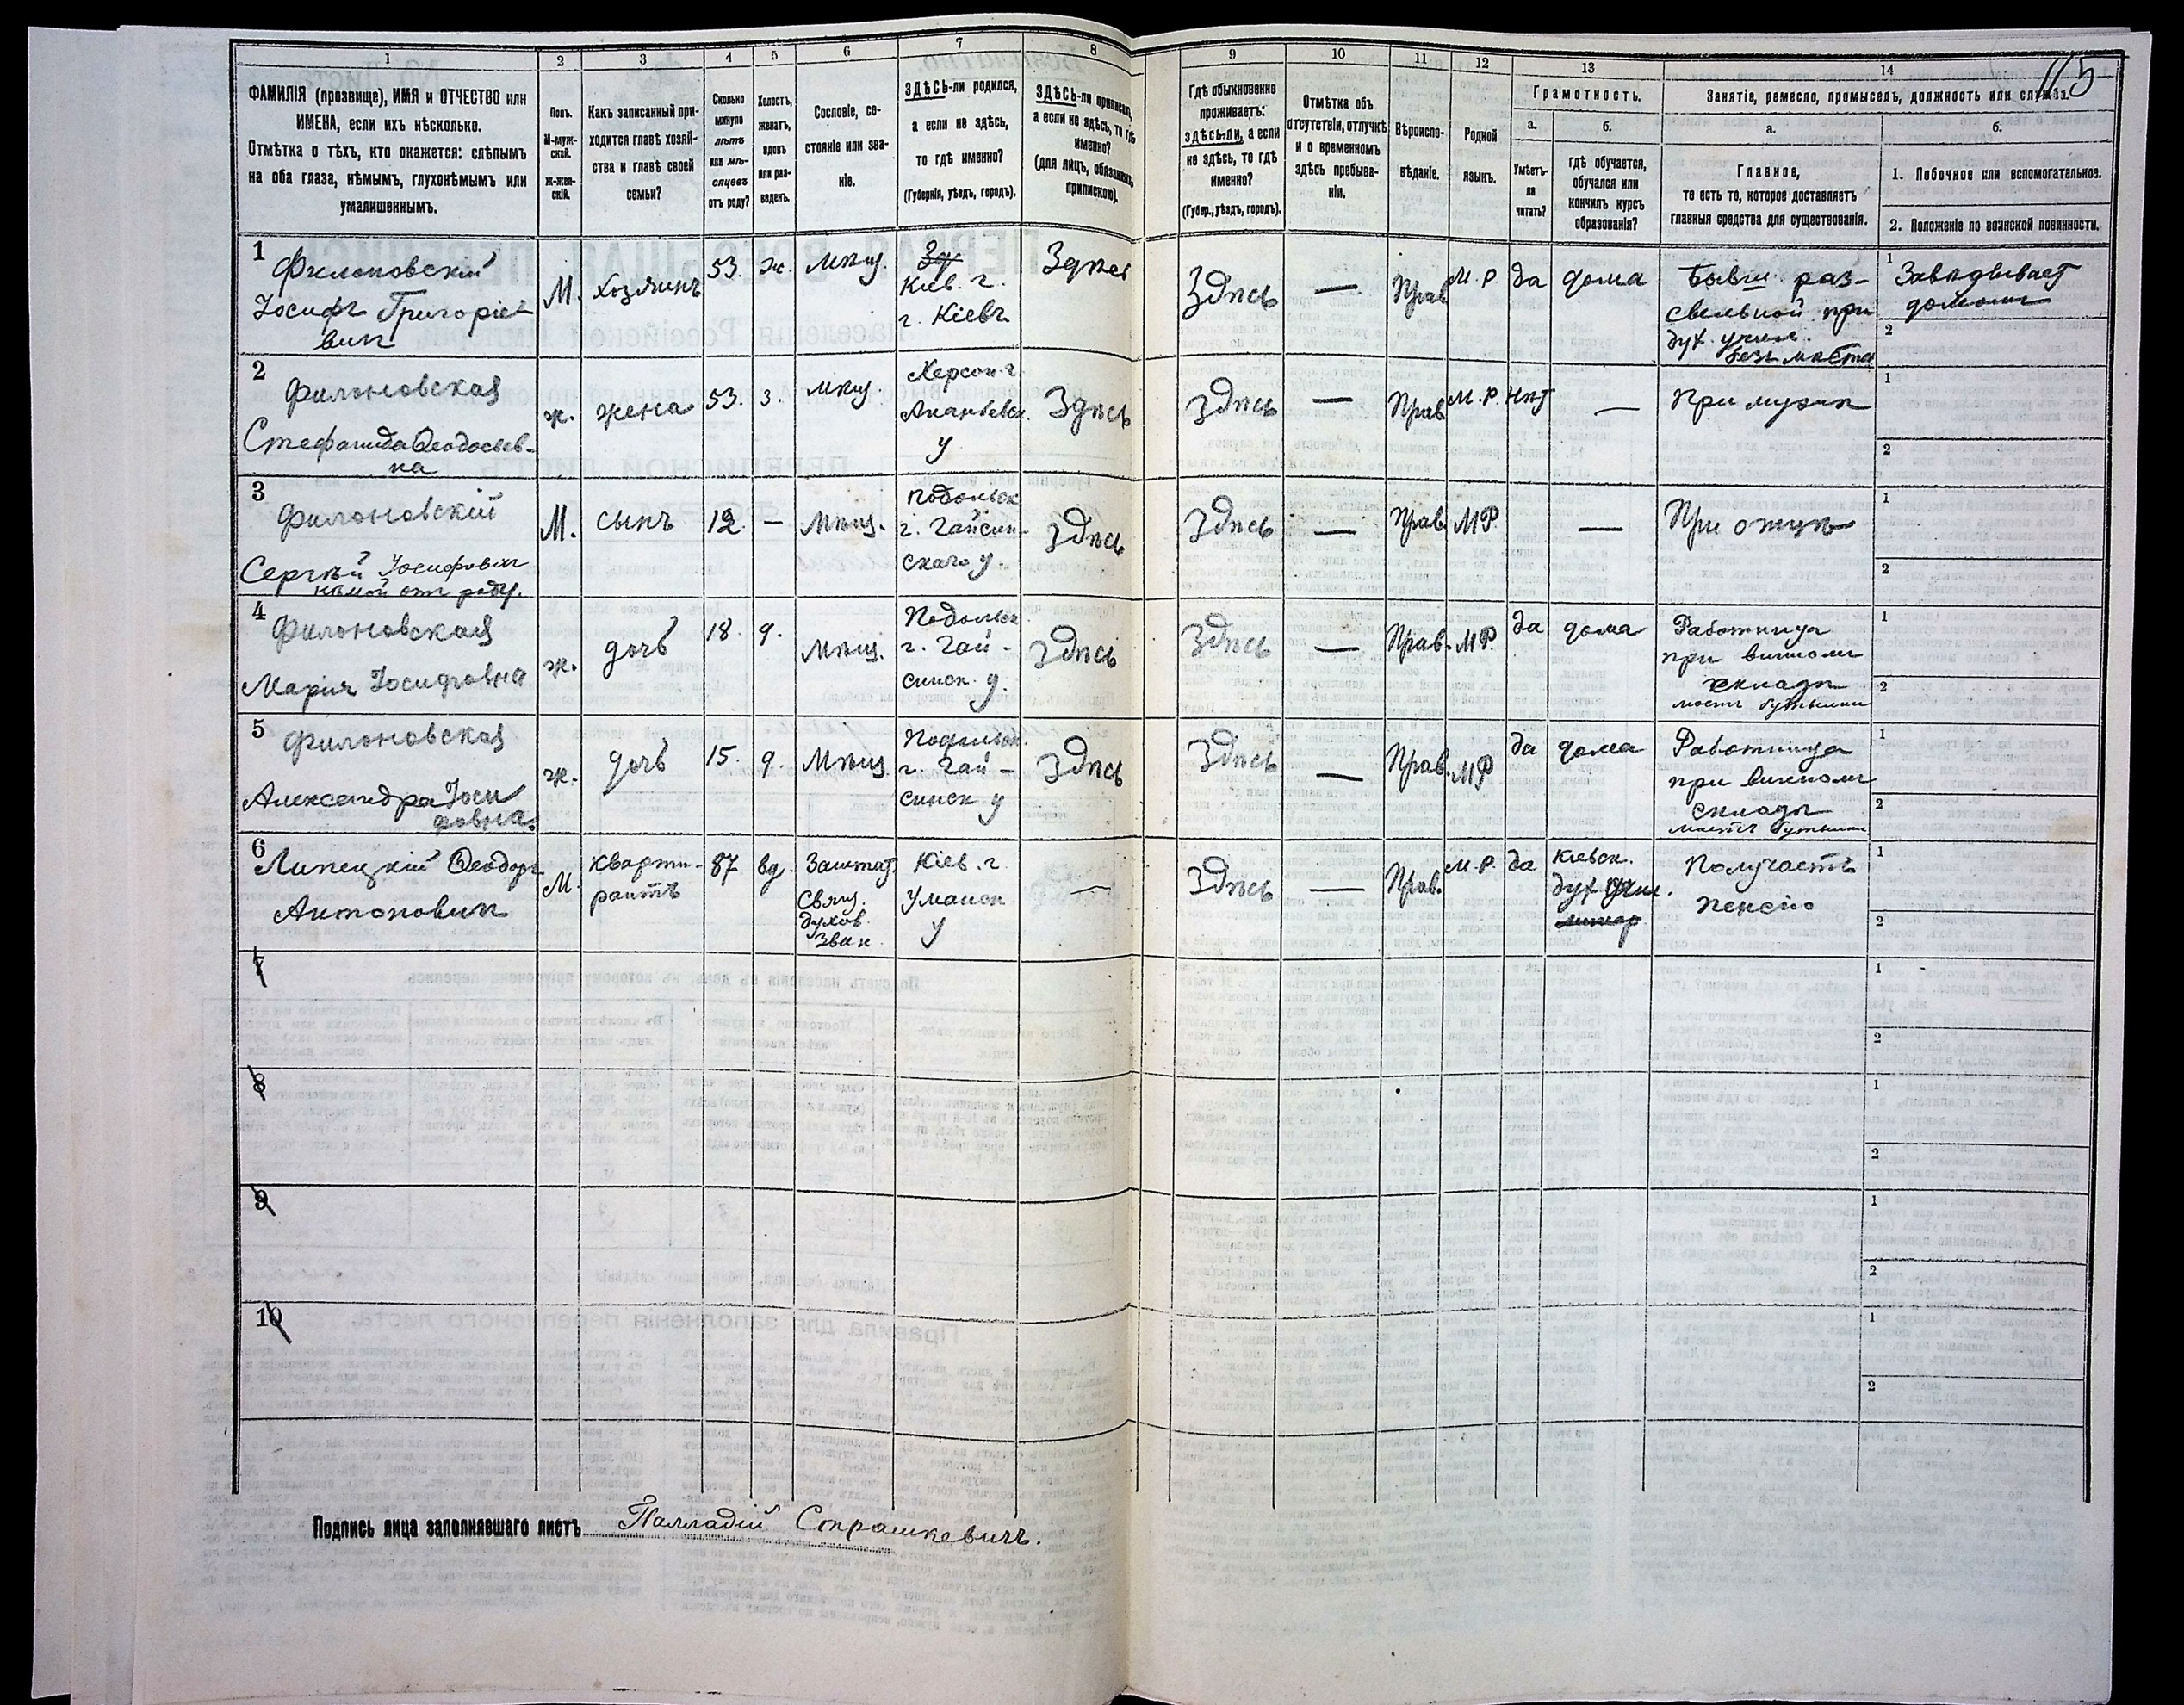 115
1 2 3 4 5 6 7 8 9 10 11 12 13 14
ФАМИЛІЯ (прозвище), ИМЯ и ОТЧЕСТВО или
ИМЕНА, если ихъ нѣсколько.
Отмѣтка о тѣхъ, кто окажется: слѣпымъ
на оба глаза, нѣмымъ, глухонѣмымъ или
умалишеннымъ.
Полъ.
М-муж-
ской.
ж-жен-
скій.
Какъ записанный при-
ходится главѣ хозяй-
ства и главѣ своей
семьи?
Сколько
минуло
лѣтъ
или мѣ-
сяцевъ
отъ роду?
Холостъ,
женатъ,
вдовъ
или раз-
веденъ.
Сословіе, со-
стояніе или зва-
ніе.
ЗДѢСЬ-ли родился,
а если не здѣсь,
то гдѣ именно?
(Губернія, уѣздъ, городъ).
ЗДѢСЬ-ли приписанъ,
а если не здѣсь, то гдѣ
именно?
(для лицъ, обязанныхъ
припискою).
Гдѣ обыкновенно
проживаетъ:
здѣсь-ли, а если
не здѣсь, то гдѣ
именно?
(Губер., уѣздъ, городъ).
Отмѣтка объ
отсутствіи, отлучкѣ
и о временномъ
здѣсь пребыва-
ніи.
Вѣроиспо-
вѣданіе.
Родной
языкъ.
Грамотность.
а.
Умѣетъ-
ли
читать?
б.
гдѣ обучается,
обучался или
кончилъ курсъ
образованія?
Занятіе, ремесло, промыселъ, должность или служба.
а.
Главное,
то есть то, которое доставляетъ
главныя средства для существованія.
б.
1. Побочное или вспомогательное.
2. Положеніе по воинской повинности.
1
Филоновскій
Іосифъ Григоріе-
вич
М.
хозяинъ
53.
ж.
мѣщ.
Зд
Кіев. г.
г. Кіевъ
Здѣсь
Здѣсь
—
Прав
М. Р.
да
дома
Бывш. раз-
сыльной при
дух. учил.
безъ мѣста
1
Завѣдывает
домомъ
2
2
Филоновская
Стефанида Ѳеодосьев-
на
ж.
жена
53.
з.
мѣщ.
Херсон. г.
Ананьевск.
у
Здѣсь
Здѣсь
—
Прав
М. Р.
нѣт
—
При мужѣ
1
2
3
Филоновскій
Сергѣй Іосифович
нѣмой отъ роду.
М.
сынъ
12.
—
Мѣщ.
Подольск
г. Гайсин-
скаго у.
Здѣсь
Здѣсь
—
Прав.
МР
—
При отцѣ
1
2
4
Филоновская
Марія Іосифовна
ж.
дочь
18.
д.
Мѣщ.
Подольск
г. Гай-
синск. у.
Здѣсь
Здѣсь
—
Прав.
МР
да
дома
Работница
при винномъ
складѣ
моетъ бутылки
1
2
5
Филоновская
Александра Іоси
фовна.
ж.
дочь
15.
д.
Мѣщ
Подольск.
г. Гай-
синск у
Здѣсь
Здѣсь
—
Прав.
МР
да
дома
Работница
при винномъ
складѣ
моетъ бутылки
1
2
6
Липецкій Ѳеодоръ
Антонович
М.
кварти-
рантъ
87
вд
Заштат.
Свящ.
духов.
зван
Кіев. г
Уманск
у
—
Здѣсь
—
Прав.
М. Р.
да
Кіевск.
дух учил.
Получаетъ
пенсію
1
2
7
1
2
8
1
2
9
1
2
10
1
2
Подпись лица заполнявшаго листъ Палладій Страшкевичъ.